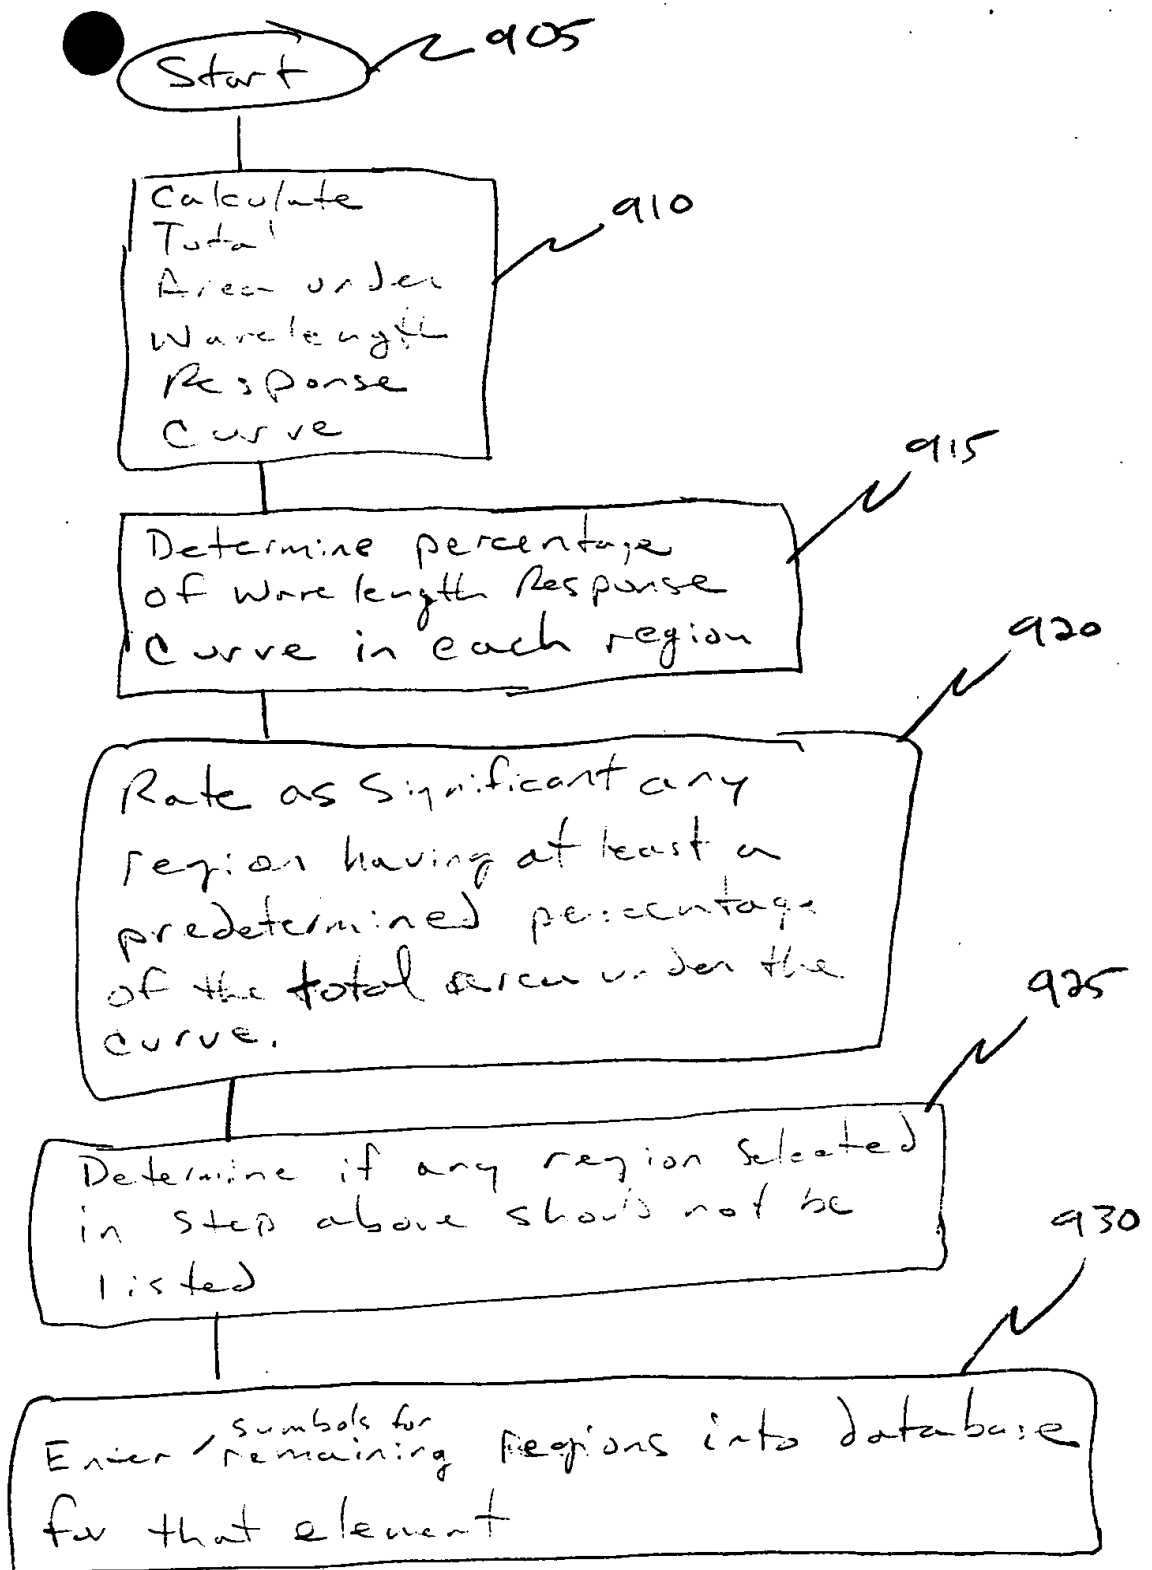 Start
905
Calculate
Total
Area under
Wavelength
Response
Curve
910
Determine percentage
of wavelength Response
Curve in each region
915
Rate as significant any
region having at least a
predetermined percentage
of the total area under the
curve.
920
Determine if any region selected
in step above should not be
listed
925
sumbols for
Enter remaining regions into database
for that element
930